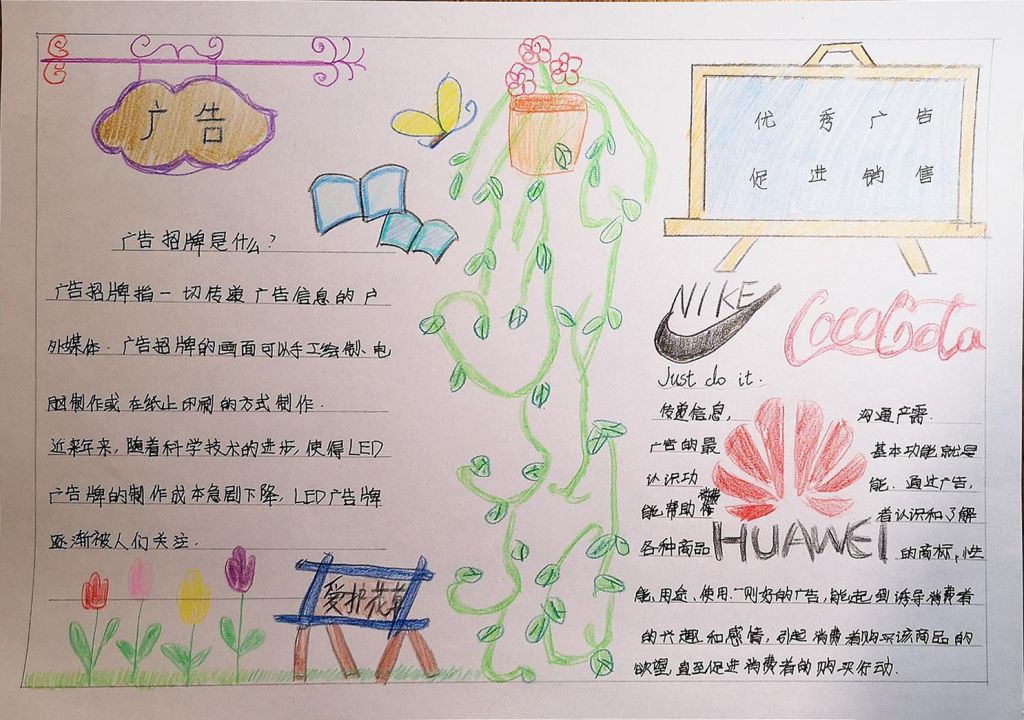 广告
广告招牌是什么?
广告招牌指一切传递广告信息的户
外媒体.广告招牌的画面可以手工绘制、电
脑制作或在纸上印刷的方式制作.
近来年来,随着科学技术的进步,使得LED
广告牌的制作成本急剧下降,LED广告牌
逐渐被人们关注.
爱护花草
优秀广告
促进销售
NIKE
Just do it.
CocaCota
传递信息, 沟通产需.
广告的最 基本功能就是
认识功 能.通过广告,
能帮助消费 者认识和了解
各种商品 的商标,性
HUAWEI
能、用途、使用.一则好的广告,能起到诱导消费者
的兴趣和感情,引起消费者购买该商品的
欲望,直至促进消费者的购买行动.